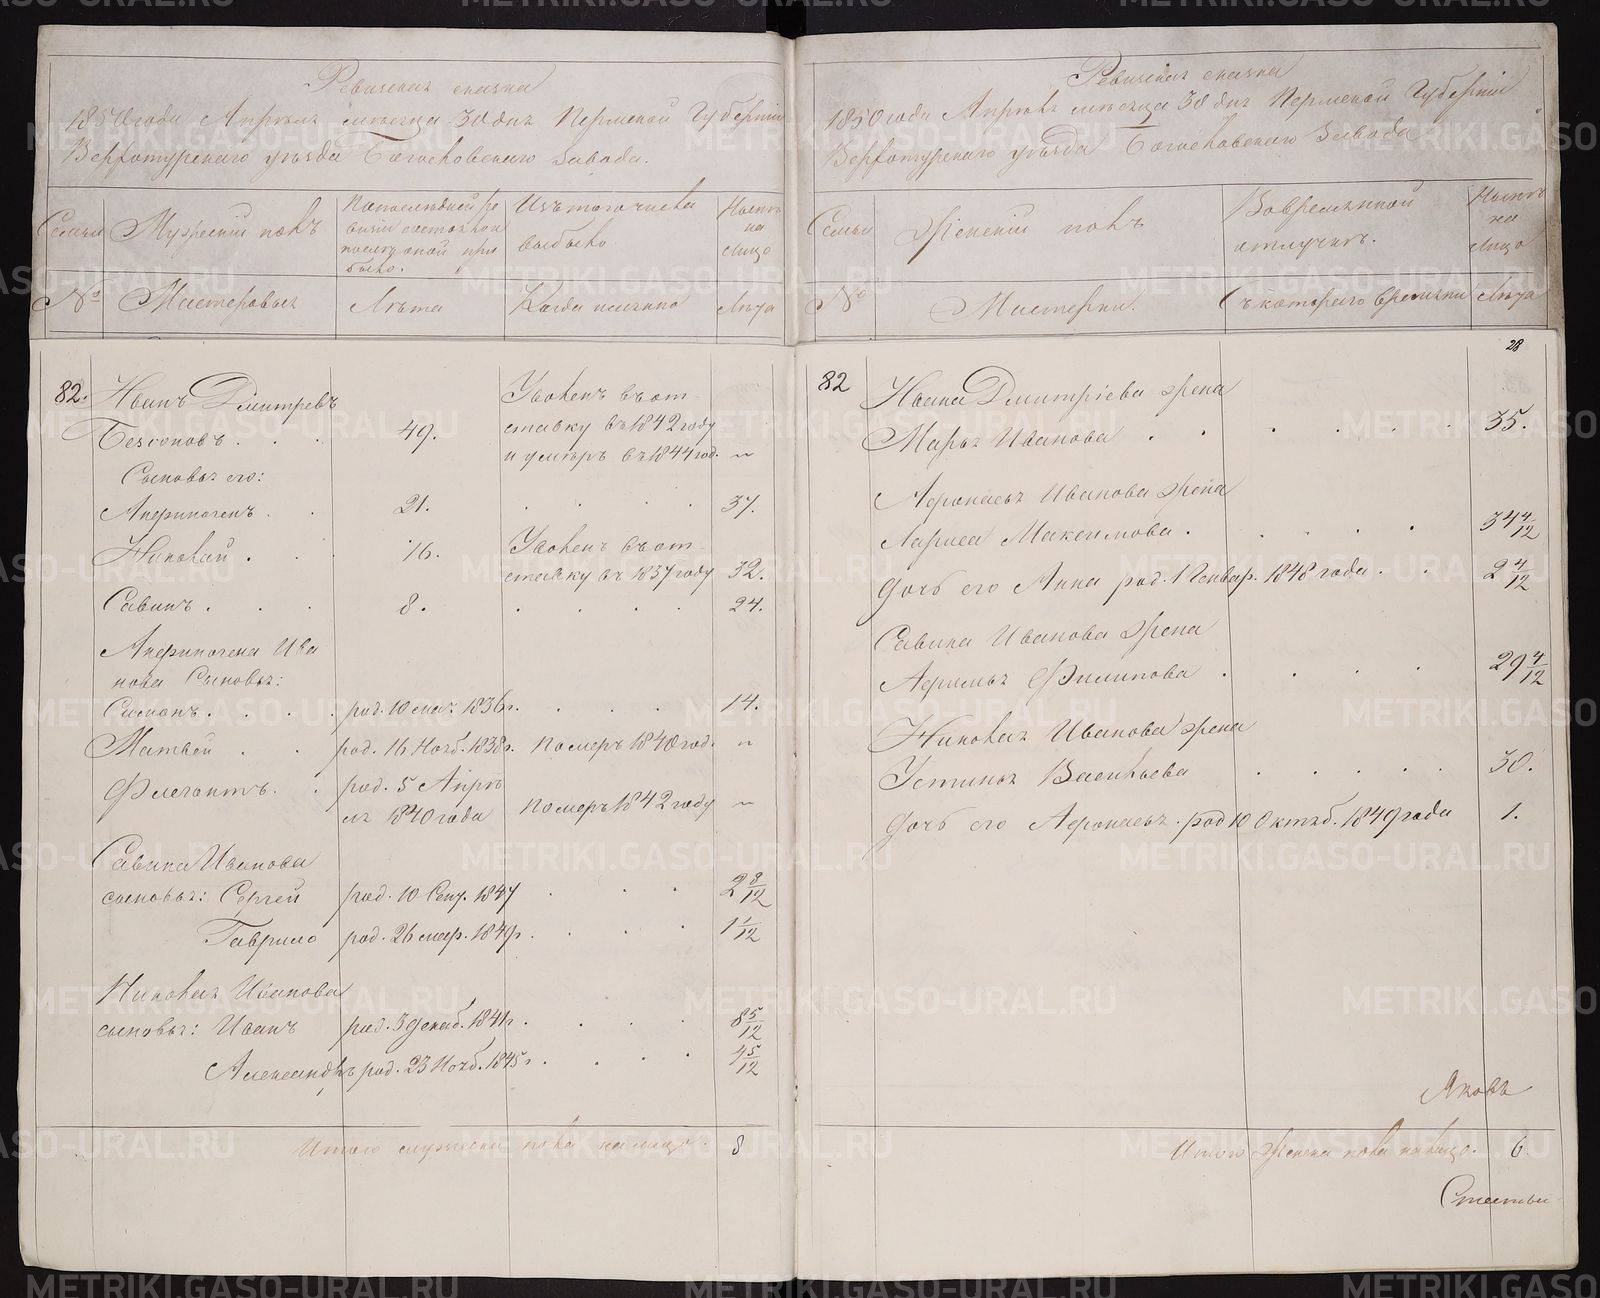 Ревизская сказка
1850 года Апреля месяца 30 дня Пермской Губернии
Верхотурского уезда Богословского Завода.
Семьи
Мужеский полъ
По последней ре
визии состояло и
после оной при
было.
Изъ того числа
выбыло
Ныне
на
лицо
№
Мастеровыя
Лѣта
Когда именно
Лѣта
82.
Иванъ Дмитревъ
49.
Уволенъ въ от
ставку въ 1842 году
и умеръ въ 1844 год.
Сыновья его:
Анфиногенъ . .
21.
37.
Николай . . .
16.
Уволенъ въ от
ставку въ 1837 году
32.
Савинъ . . .
8.
24.
Анфиногена Ива
нова Сыновья:
Симонъ . . . .
род. 10 мая 1836 г.
14.
Матвей . .
род. 16 Нояб. 1838 г.
Померъ 1840 год.
Флегонтъ . .
род. 5 Апре
ля 1840 года
Померъ 1842 году
Савина Иванова
сыновья: Сергей
род. 10 Сент. 1847
2 8/12
Гаврило
род. 26 мар. 1849 г.
1 1/12
Николая Иванова
сыновья: Иванъ
род. 3 декаб. 1841 г.
8 5/12
Александръ
род. 23 Нояб. 1845 г.
4 5/12
Итого мужеска пола на лицо.
8
Ревизская сказка
1850 года Апреля месяца 30 дня Пермской Губернии
Верхотурского уезда Богословского Завода
Семьи
Женский полъ
Во временной
отлучке.
Ныне
на
лицо
№
Мастерки.
Съ которого времени
Лѣта
28
82
Ивана Дмитріева жена
Марья Иванова
35.
Афонасья Иванова жена
Лариса Максимова .
34 4/12
Дочь его Анна род. 1 Генвар. 1848 года
2 4/12
Савина Иванова жена
Афимья Филипова
29 4/12
Николая Иванова жена
Устинья Васильева
30.
Дочь его Афонасья. род 10 Октяб. 1849 года
1.
Яковъ
Итого Женска пола на лицо.
6
METRIKI.GASO-URAL.RU